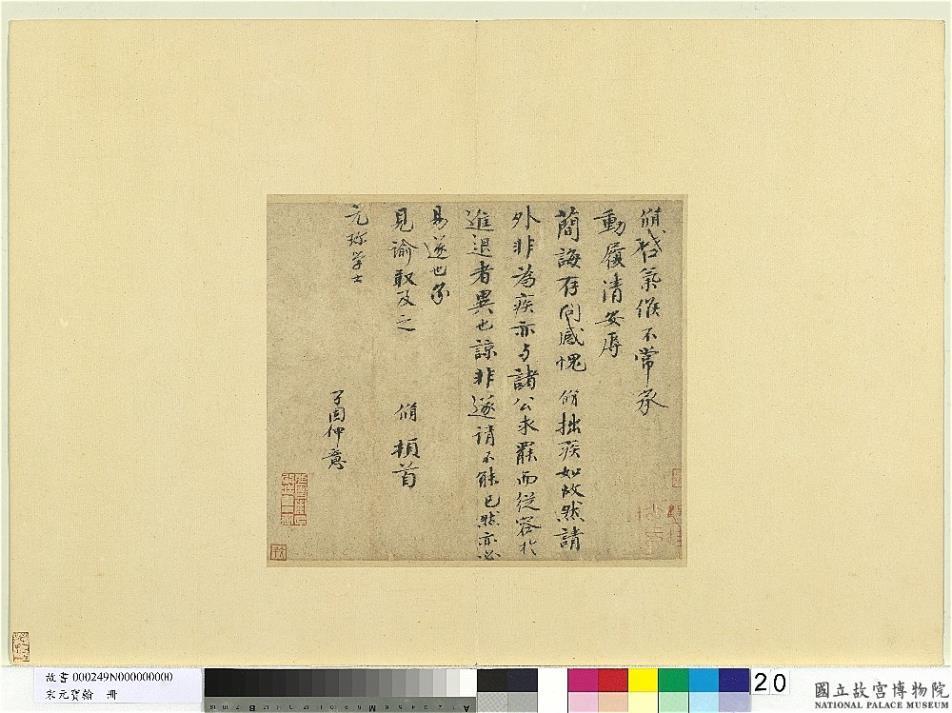 脩啓氣候不常承
動履清安辱
簡誨存問感愧脩拙疾如故然請
外非為疾亦与諸公求罷而從容於
進退者異也諒非遂請不能已然亦必
易遂也承
見諭敢及之
脩頓首
元珍學士
子固仲意
故書 000249N000000000
宋元寶翰 冊
B
M
A
20
國立故宮博物院
NATIONAL PALACE MUSEUM